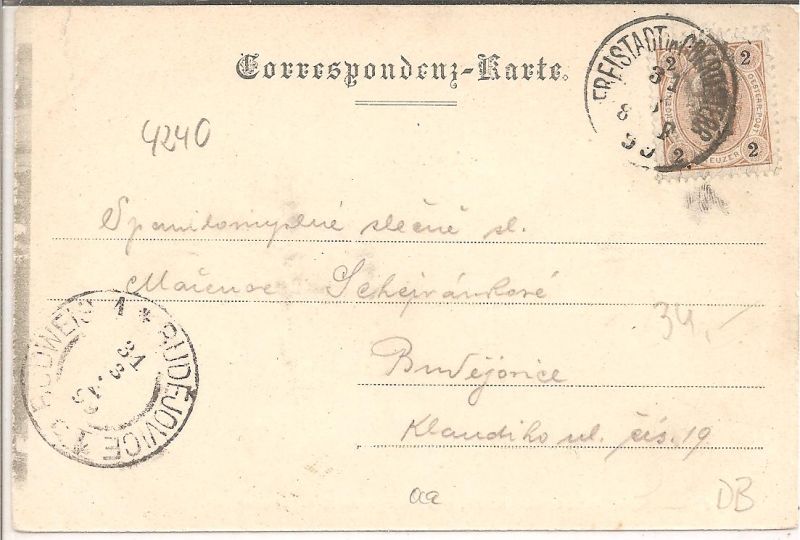 Correspondenz-Karte.
FREISTADT in
31
8
99
2 2
2 2
KREUZER
4240
slečně sl.
Schejvánkové
Budějovice
Klaudiho ul. čís. 19
34,-
BUDWEIS 1 * BUDĚJOVICE 1
31
8
aa
DB